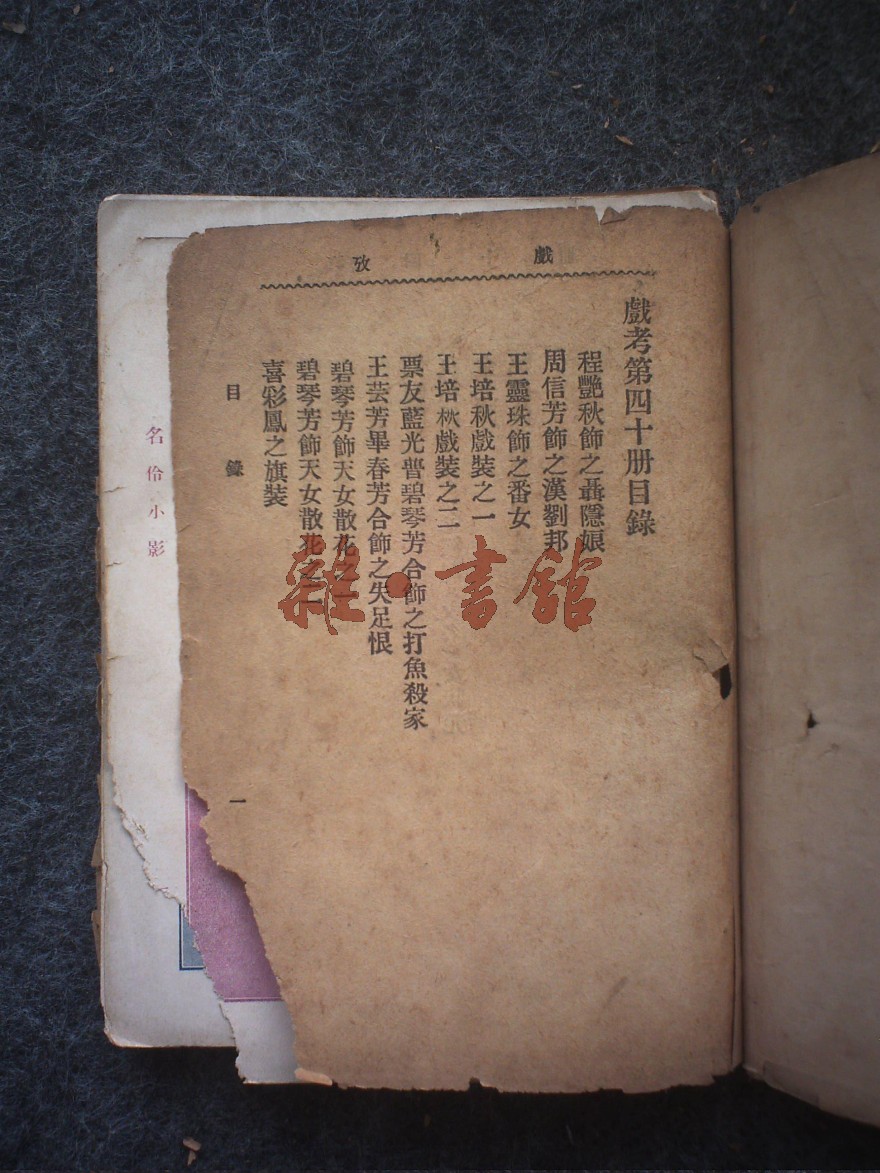 戲攷
戲考第四十册目錄
程艷秋飾之聶隱娘
周信芳飾之漢劉邦
王靈珠飾之番女
王培秋戲裝之一
王培秋戲裝之二
票友藍光普碧琴芳合飾之打魚殺家
王芸芳畢春芳合飾之失足恨
碧琴芳飾天女散花之一
碧琴芳飾天女散花之二
喜彩鳳之旗裝
目錄
一
名伶小影
雜·書館